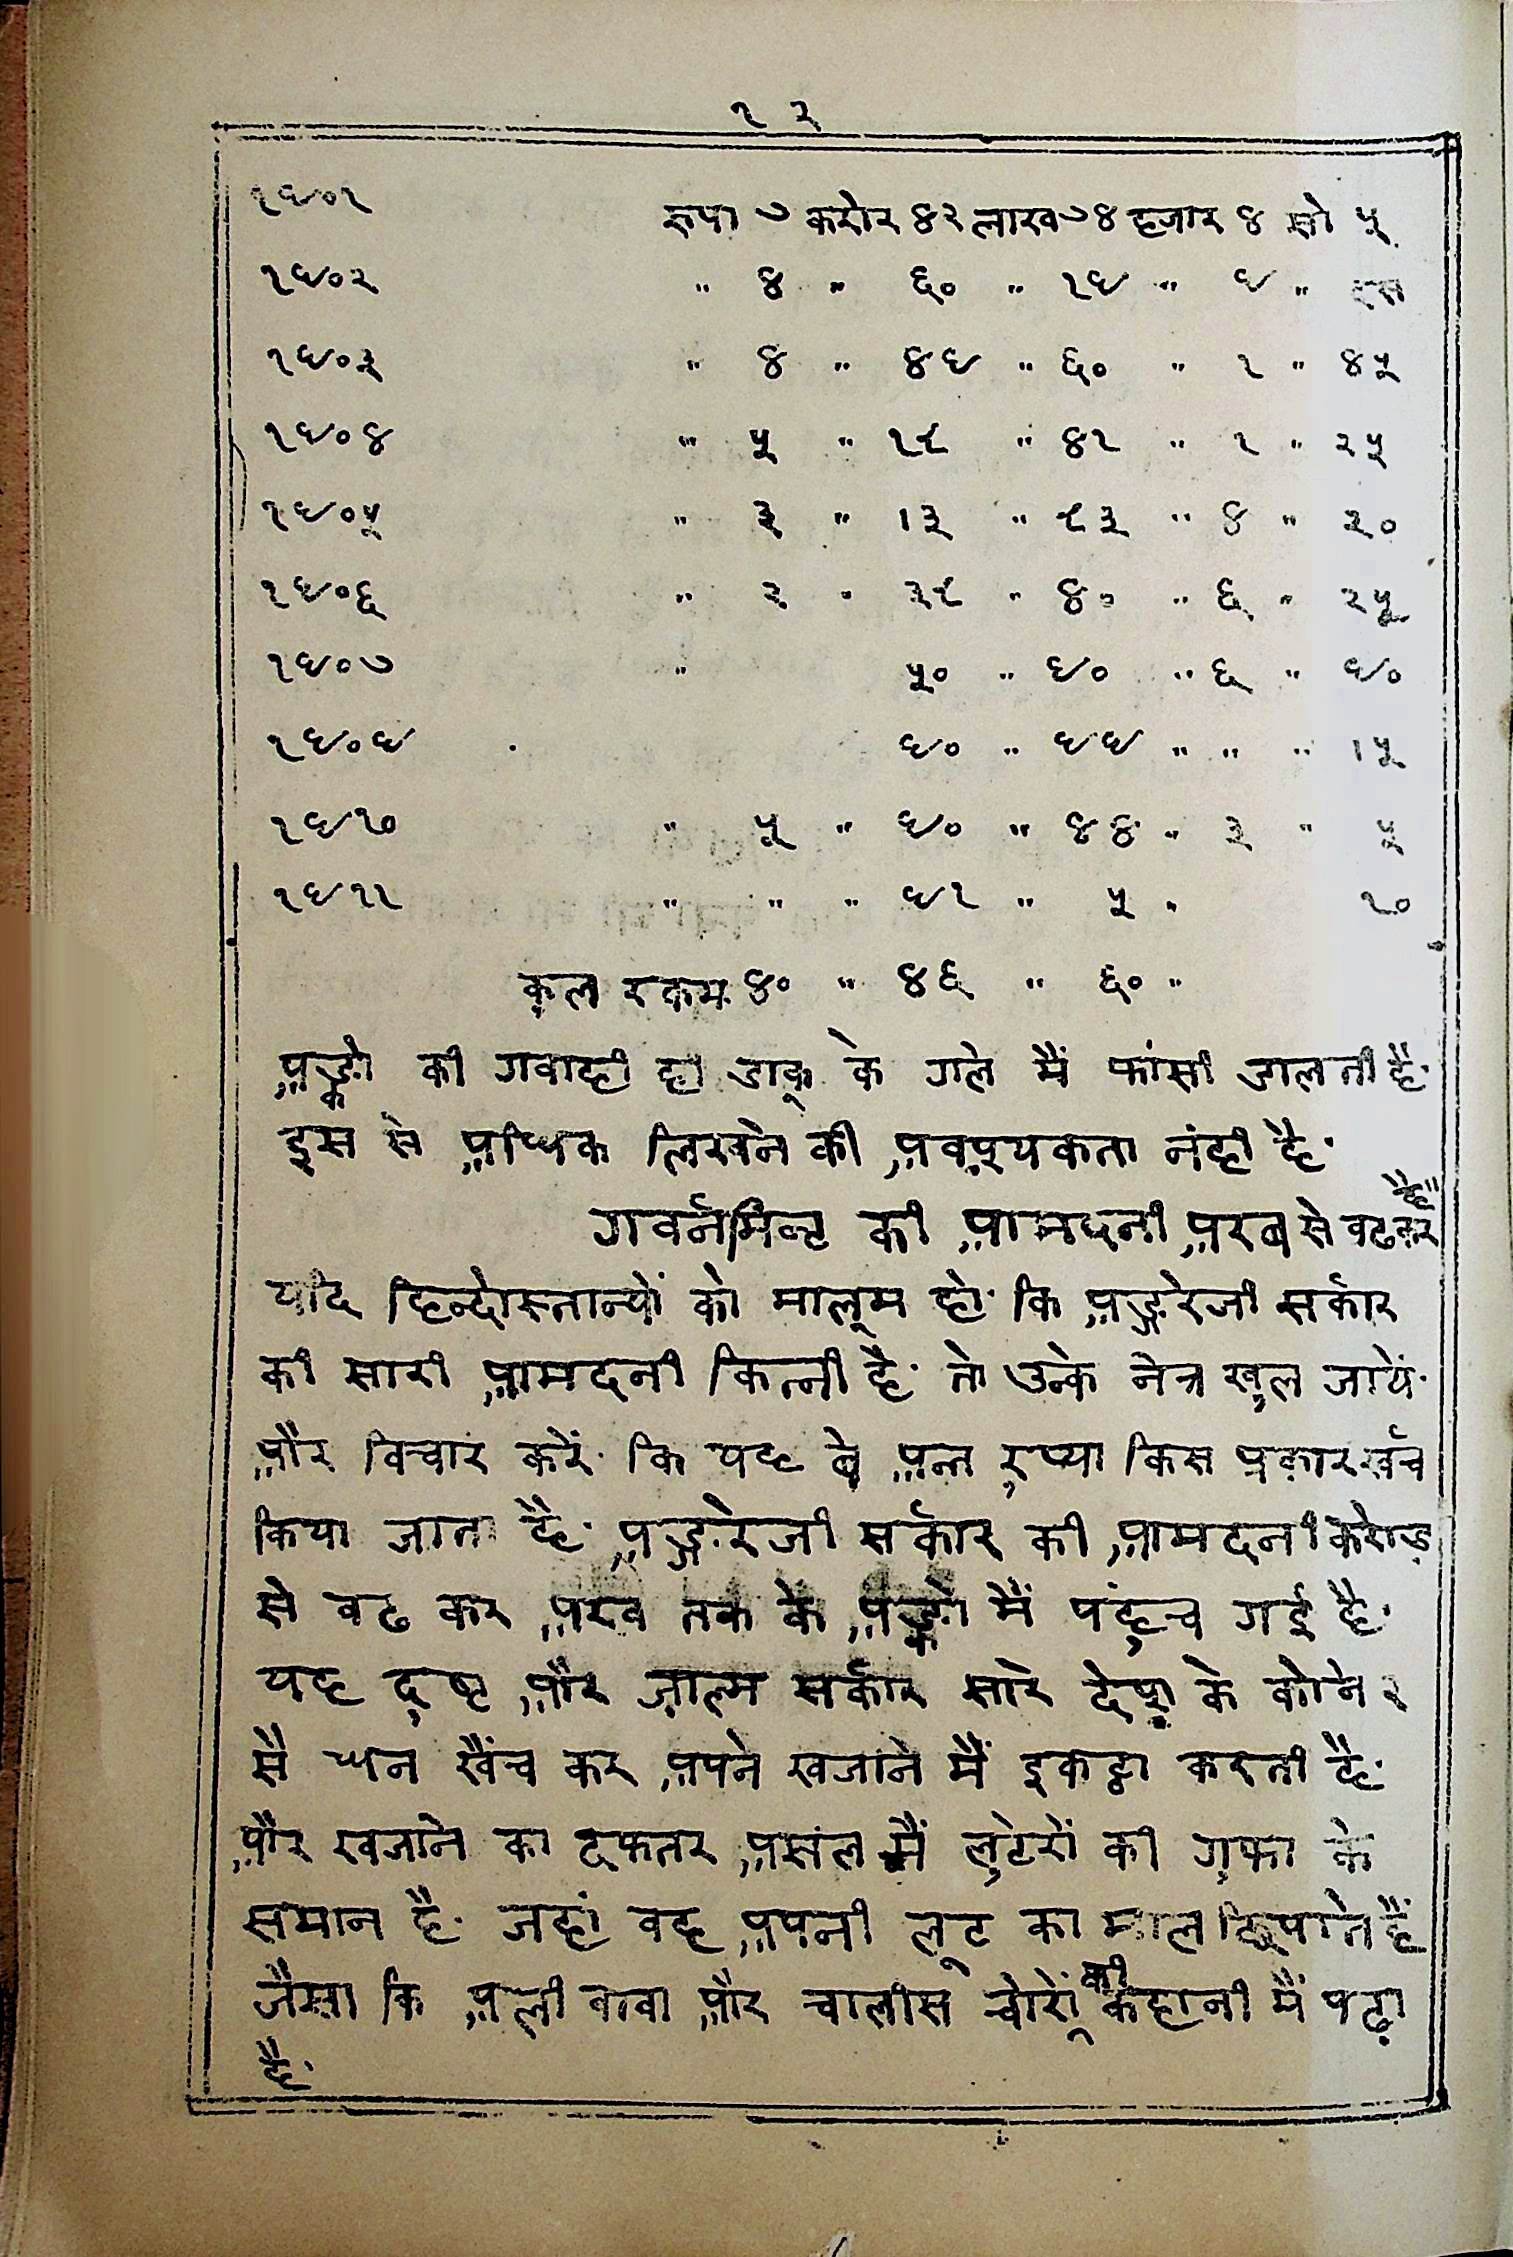 १२
१९०१ रुपा ७ करोर ४२ लाख ७४ हजार ४ सो ५
१९०२ " ४ " ६० " १९ " ९ "
१९०३ " ४ " ४९ " ६० " १ " ४५
१९०४ " ५ " १८ " ४१ " १ " २५
१९०५ " ३ " १३ " ८३ " ४ " ३०
१९०६ " २ " ३८ " ४० " ६ " २५
१९०७ " ५० " ९० " ६ " ९०
१९०९ ९० " ९९ " " " १५
१९१० " ५ " ९० " ४४ " ३ " ५
१९११ " " " ९१ " ५ " १०
कुल रकम ४० " ४६ " ६० "
अङ्को की गवाही हा डाकू के गले मैं फांसी डालती है.
इस से अधिक लिखने की अवश्यकता नंही है.
गवर्नमिन्ट की आमदनी अरब से बढकर है"
यदि हिन्दोस्तान्यों को मालूम हो. कि अङ्गरेजी सर्कार
की सारी आमदनी कित्नी है. तो उन्के नेत्र खुल जायें.
और विचार करें. कि यह बे अन्त रुप्या किस प्रकार खर्च
किया जाता है. अङ्गरेजी सर्कार की आमदनी करोड़
से बढ कर अरब तक के अङ्को मैं पंहुच गई है.
यह दुष्ट और ज़ाल्म सर्कार सारे देश के कोने २
सै धन खैंच कर अपने खजाने मैं इकट्ठा करती है.
और खजाने का दफतर असल मैं लुटेरों की गुफा के
समान है. जहां वह अपनी लूट का माल छिपाते हैं
जैसा कि अली बाबा और चालीस चोरों की कहानी मैं पढ़ा
है.